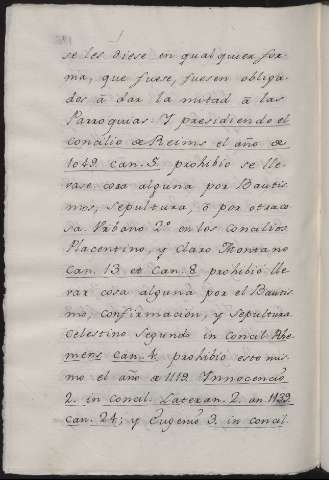 se les diese en qualquier for-
ma, que fuese, fuesen obliga-
dos â dar la mitad â las
Parroquias. Y presidiendo el
Concilio de Reims el año de
1049. Can. 5. prohibio se lle-
vase cosa alguna por Bautis-
mos, Sepultura, ô por otra co-
sa. Urbano 2º en los Concilios
Placentino, y Claro Montano
Can. 13 et Can. 8 prohibio lle-
var cosa alguna por el Bautis-
mo, Confirmacion, y Sepultura
Celestino Segundo in Concil Rhe-
mens Can. 4. prohibio esto mis-
mo el año de 1119. Innocencio
2. in Concil. Lateran. 2. an. 1139.
Can. 24; y Eugenio 3. in Concil.